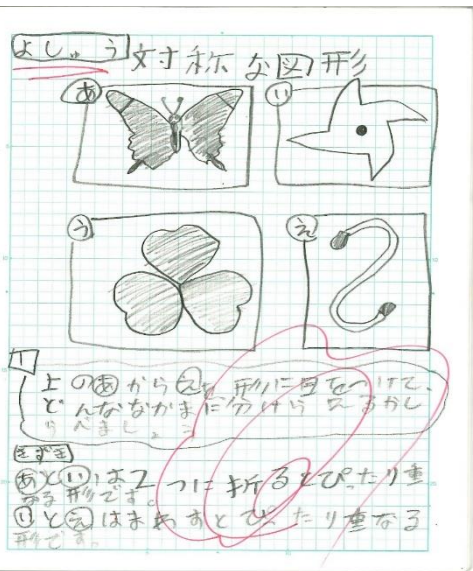 よしゅう 対称な図形
あ い
う え
1
上のあからえを形に目をつけて、
どんななかまに分けられるかし
らべましょう。
きづき
あとうは2つに折るとぴったり重
なる形です。
いとえはまわすとぴったり重なる
形です。